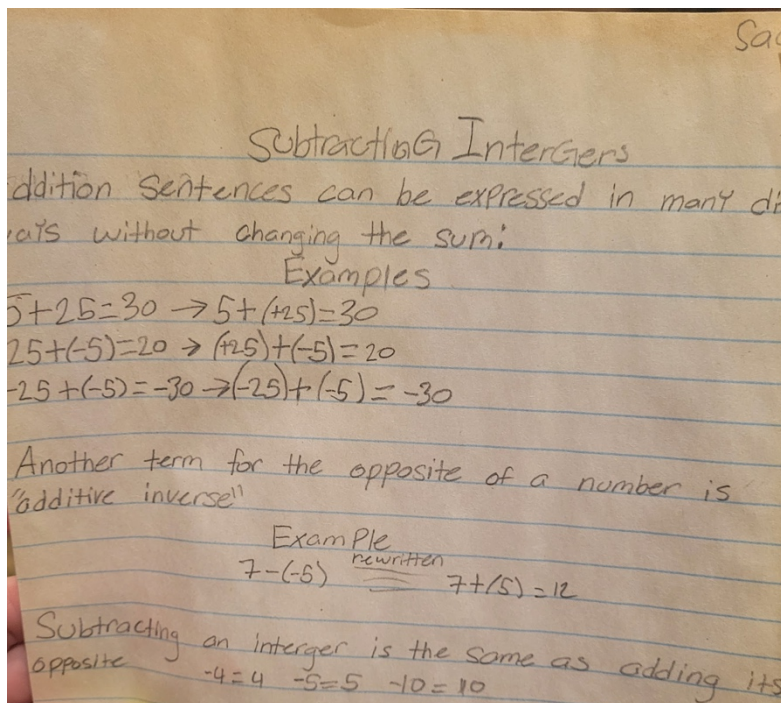 Sag
Subtracting Intergers
ddition Sentences can be expressed in many di
ays without changing the sum:
Examples
5+25=30 → 5+(+25)=30
25+(-5)=20 → (+25)+(-5)=20
-25+(-5)=-30 → (-25)+(-5)=-30
Another term for the opposite of a number is
"additive inverse"
Example
7-(-5) rewritten 7+(5)=12
Subtracting an interger is the same as adding its
opposite -4=4 -5=5 -10=10